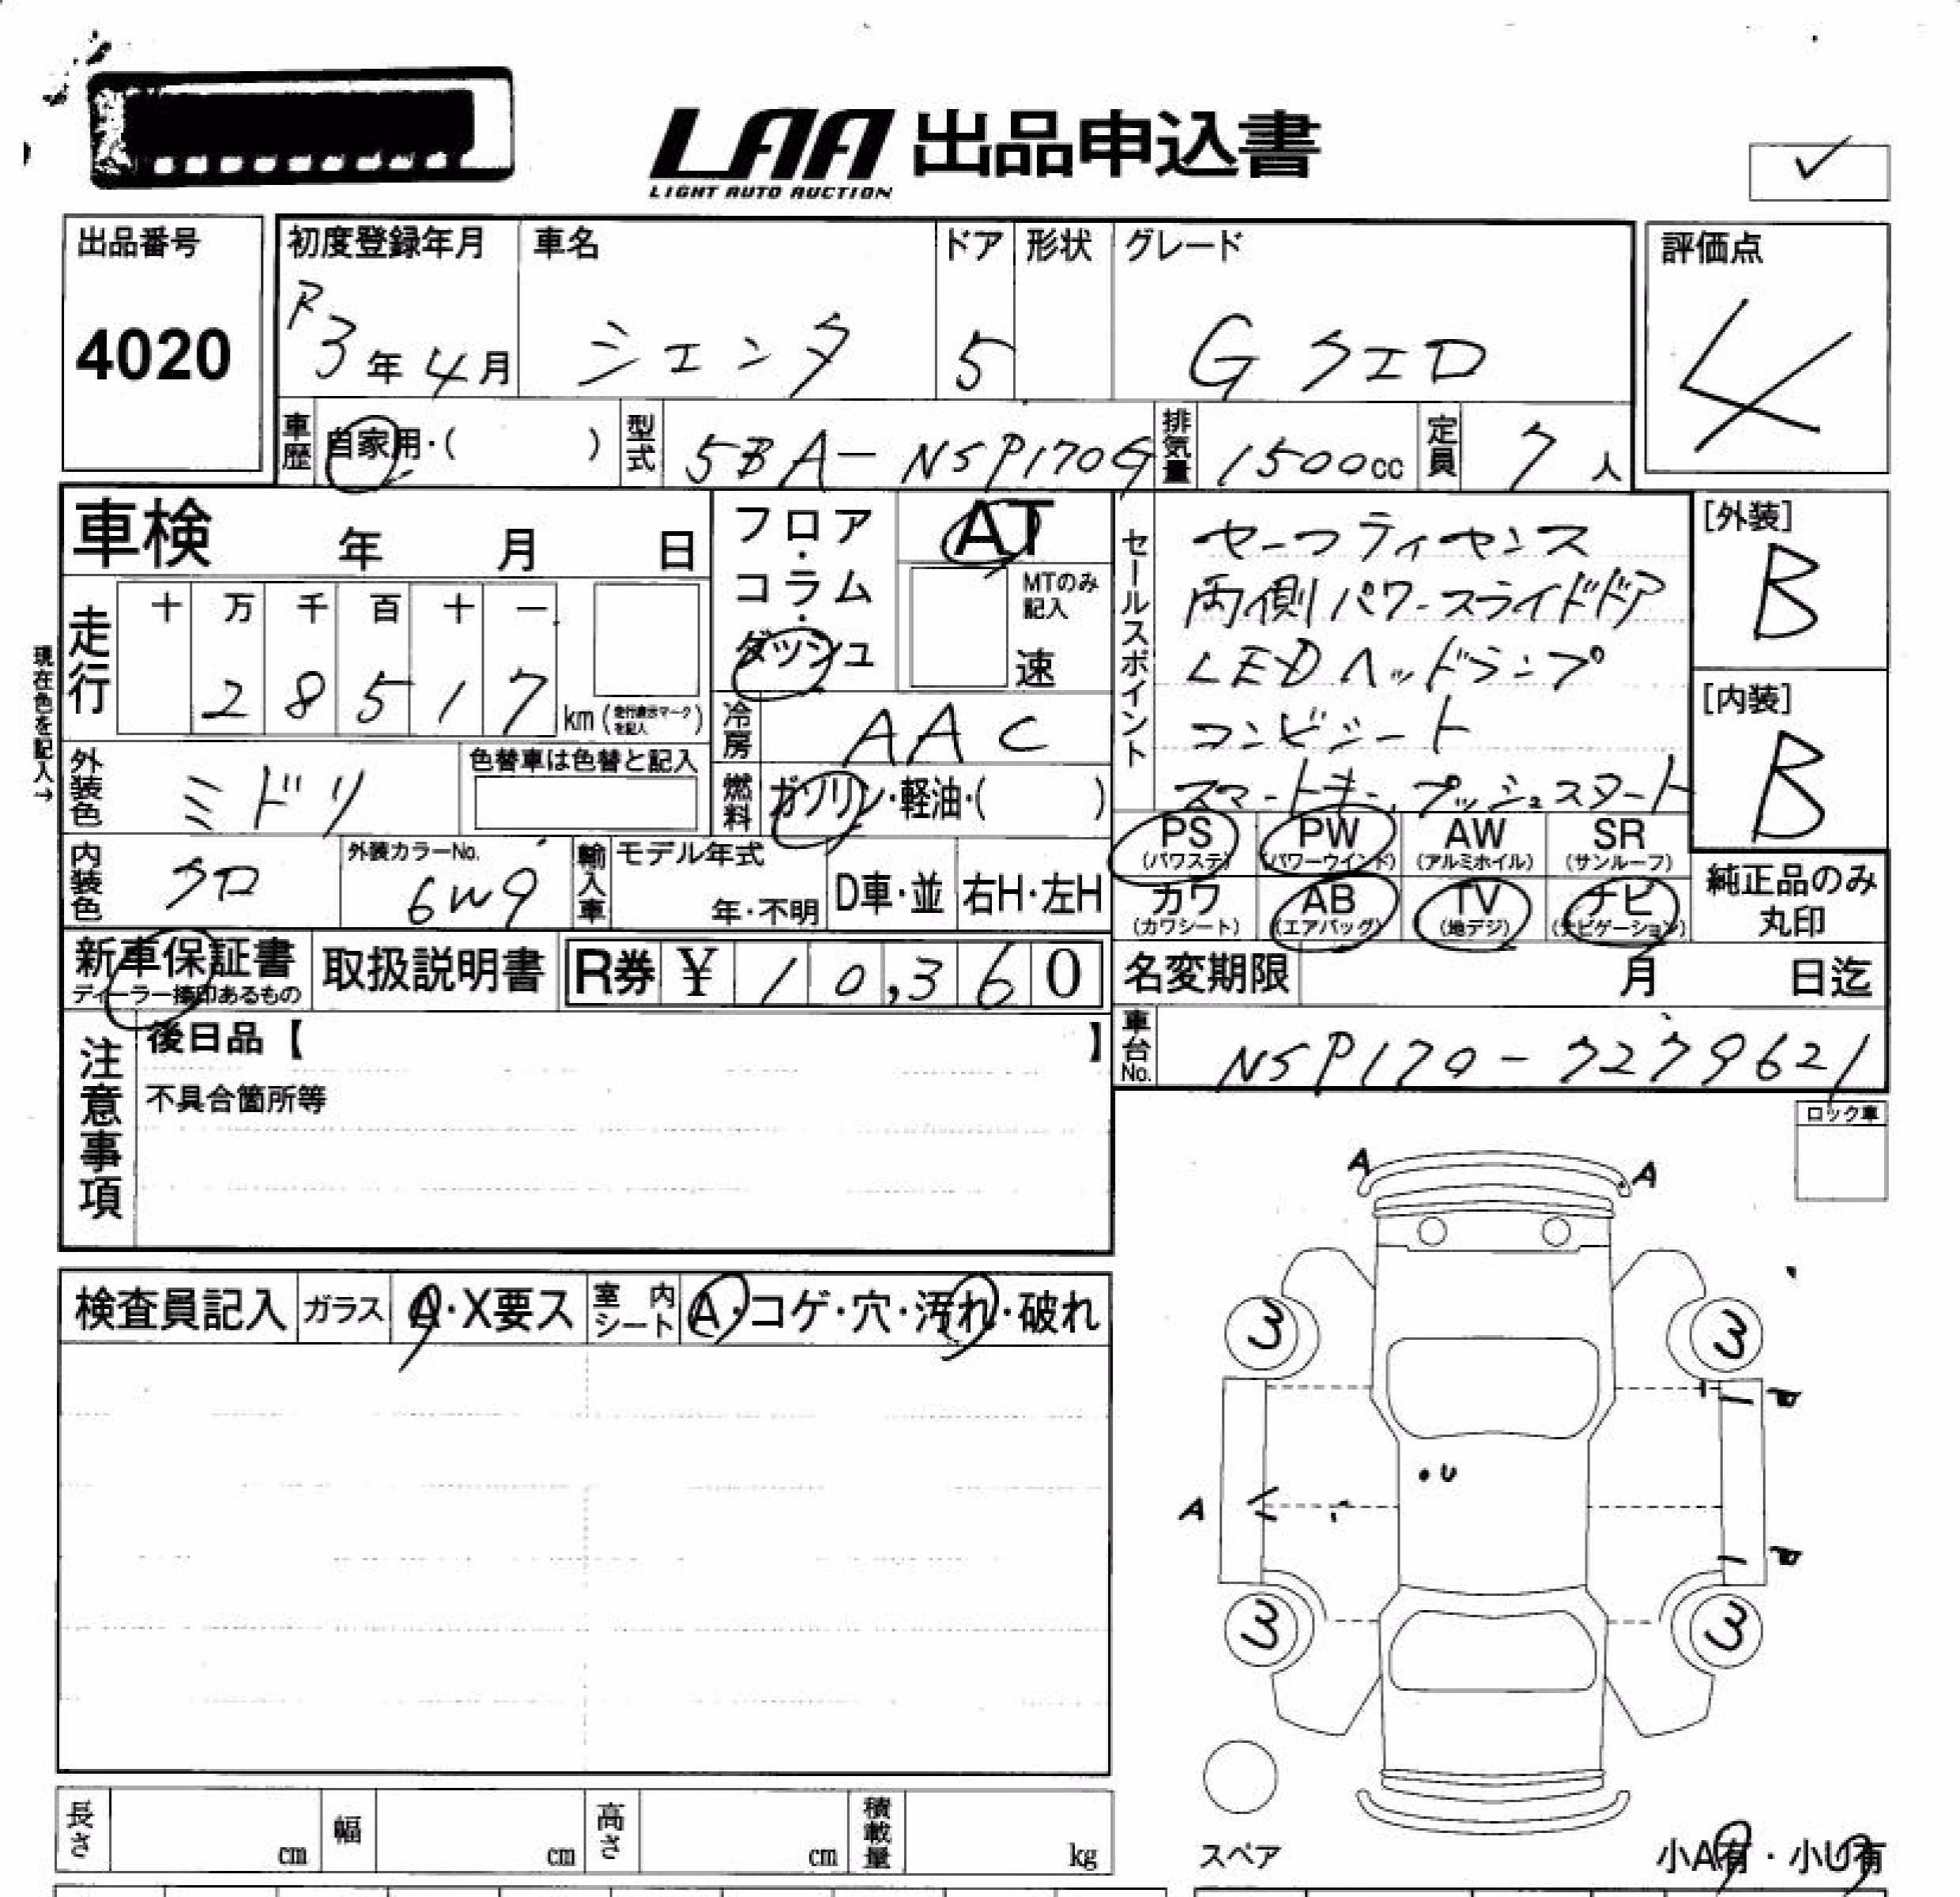 LAA 出品申込書
LIGHT AUTO AUCTION
出品番号
4020
初度登録年月
R3年4月
車名
シエンタ
ドア
5
形状
グレード
G クエロ
評価点
4
車歴
自家用・( )
型式
5BA-NSP170G
排気量
1500cc
定員
7人
車検 年 月 日
フロア・コラム・ダッシュ
AT
MTのみ記入
速
セールスポイント
セーフティセンス
両側パワースライドドア
LEDヘッドランプ
コンビシート
スマートキー, プッシュスタート
[外装]
B
[内装]
B
現在色を記入→
走行
十 万 千 百 十 一
2 8 5 1 7 km
冷房
AAC
外装色
ミドリ
色替車は色替と記入
燃料
ガソリン・軽油・( )
内装色
クロ
外装カラーNo.
6W9
輸入車
モデル年式
年・不明
D車・並
右H・左H
PS (パワステ)
PW (パワーウインド)
AW (アルミホイル)
SR (サンルーフ)
カワ (カワシート)
AB (エアバッグ)
TV (地デジ)
ナビ (ナビゲーション)
純正品のみ丸印
新車保証書
ディーラー捺印あるもの
取扱説明書
R券 ¥ 10,360
名変期限 月 日迄
車台No.
NSP170-7279621
注意事項
後日品【 】
不具合箇所等
ロック車
検査員記入
ガラス
A・X要ス
室内シート
A・コゲ・穴・汚れ・破れ
A
A
3
3
U
A
3
3
スペア
小A有・小U有
長さ cm
幅 cm
高さ cm
積載量 kg